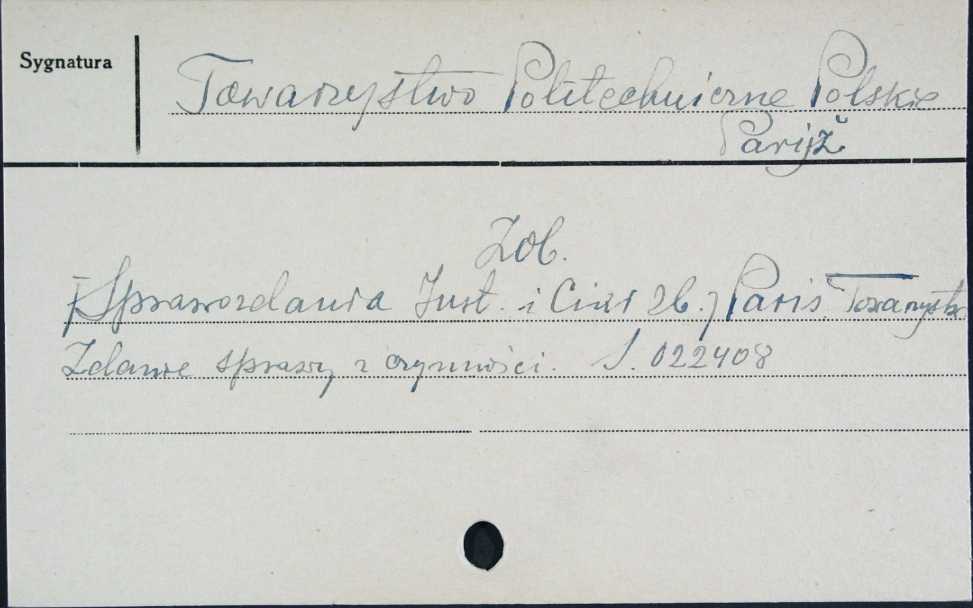 Sygnatura
Towarzystwo Politechniczne Polskie
Paryż
Zob.
[Sprawozdania Inst. i Ciał zb.] Paris Towarzystw
Zdanie sprawy z czynności. S. 022408